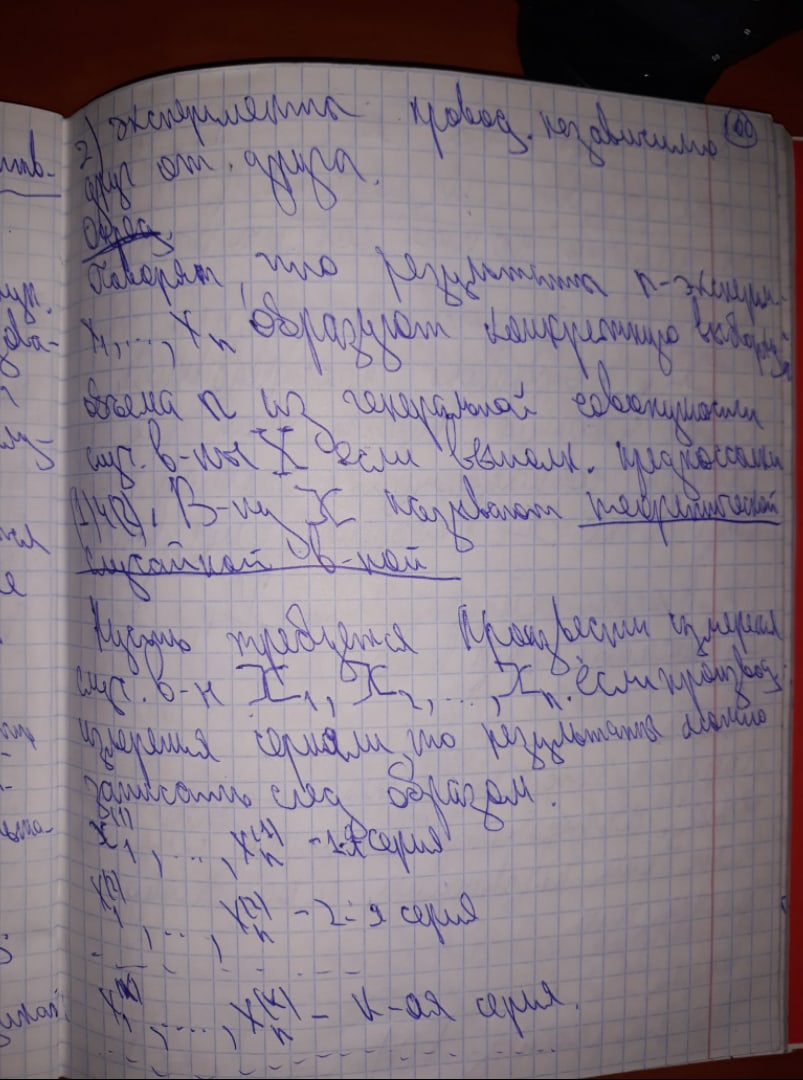 2) эксперименты провод. независимо
друг от друга.
Опред.
Говорят, что результаты n-эксперим.
x₁,...,xₙ образуют конкретную выборку
объема n из генеральной совокупности
случ. в-ны X если выполн. предпосылки
(1) и (2). В-ну X называют теоретической
случайной в-ной
Пусть требуется произвести измерения
случ. в-н X₁, X₂,...,Xₙ. если производ.
измерения сериями, то результаты можно
записать след образом.
x₁⁽¹⁾,...,xₙ⁽¹⁾ - 1-я серия
x₁⁽²⁾,...,xₙ⁽²⁾ - 2-я серия
x₁⁽ᵏ⁾,...,xₙ⁽ᵏ⁾ - k-ая серия.